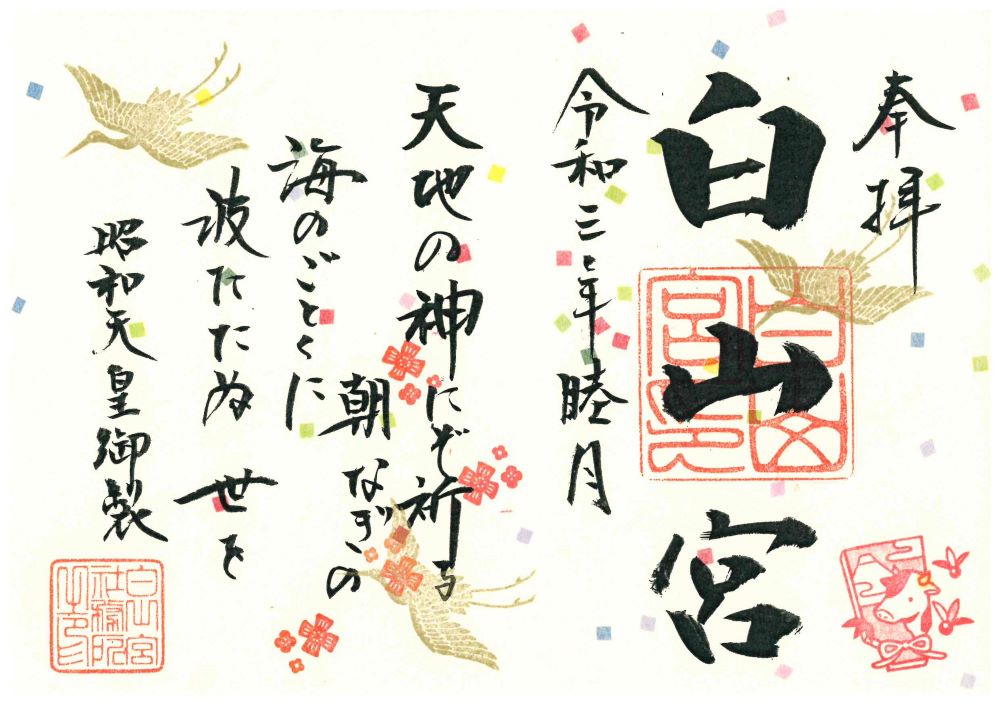 奉拝
白山宮
白山
宮印
令和三年睦月
天地の神にぞ祈る
朝なぎの
海のごとくに
波たたぬ 世を
昭和天皇御製
白山宮
社務所
之印